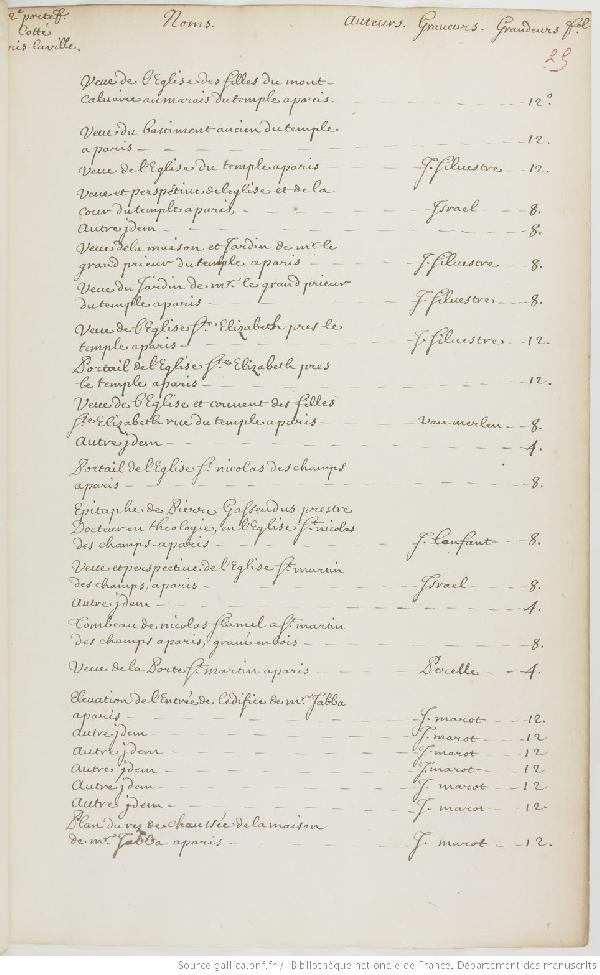 2.e portef.
Noms. Auteurs. Graueurs. Grandeurs ff.el
Cotté
ris la ville.
25
Veue de l'Eglise des filles du mont-
caluaire au marais du temple a paris — 12.o
Veue du bastiment ancien du temple
a paris — 12.
Veue de l'Eglise du temple a paris — J. Siluestre — 12.
Veue et perspectiue de leglise et de la
cour du temple a paris, — Jsrael — 8.
Autre jdem — 8.
Veue de la maison et Jardin de mr. le
grand prieur du temple a paris — J. Siluestre — 8.
Veue du Jardin de mr. le grand prieur
du temple a paris — J. Siluestre — 8.
Veue de l'Eglise Ste. Elizabeth pres le
temple a paris — J. Siluestre — 12.
Portail de l'Eglise Ste. Elizabeth pres
le temple a paris — 12.
Veue de l'Eglise et couuent des filles
Ste. Elizabeth rue du temple a paris — Van-merlen — 8.
Autre jdem — 4.
Portail de l'Eglise St. nicolas des champs
a paris — 8.
Epitaphe de Pierre Gassendus prestre
Docteur en theologie, en l'Eglise St. nicolas
des champs a paris — J. Lenfant — 8.
Veue et perspectiue de l'Eglise St. martin
des champs, a paris — Jsrael — 8.
Autre jdem — 4.
Tombeau de nicolas flamel a St. martin
des champs a paris, graué en bois — 8.
Veue de la Porte St. martin a paris — Perelle — 4.
Eleuation de l'Entrée de l'edifice de mr. Jabba
a paris — J. marot — 12.
autre jdem — J. marot — 12
Autre jdem — J. marot — 12
Autre jdem — J. marot — 12
Autre jdem — J. marot — 12
Autre jdem — J. marot — 12.
Plan du rez de chaussée de la maison
de mr. Jabba a paris — J. marot — 12.
Source gallica.bnf.fr / Bibliothèque nationale de France. Département des manuscrits